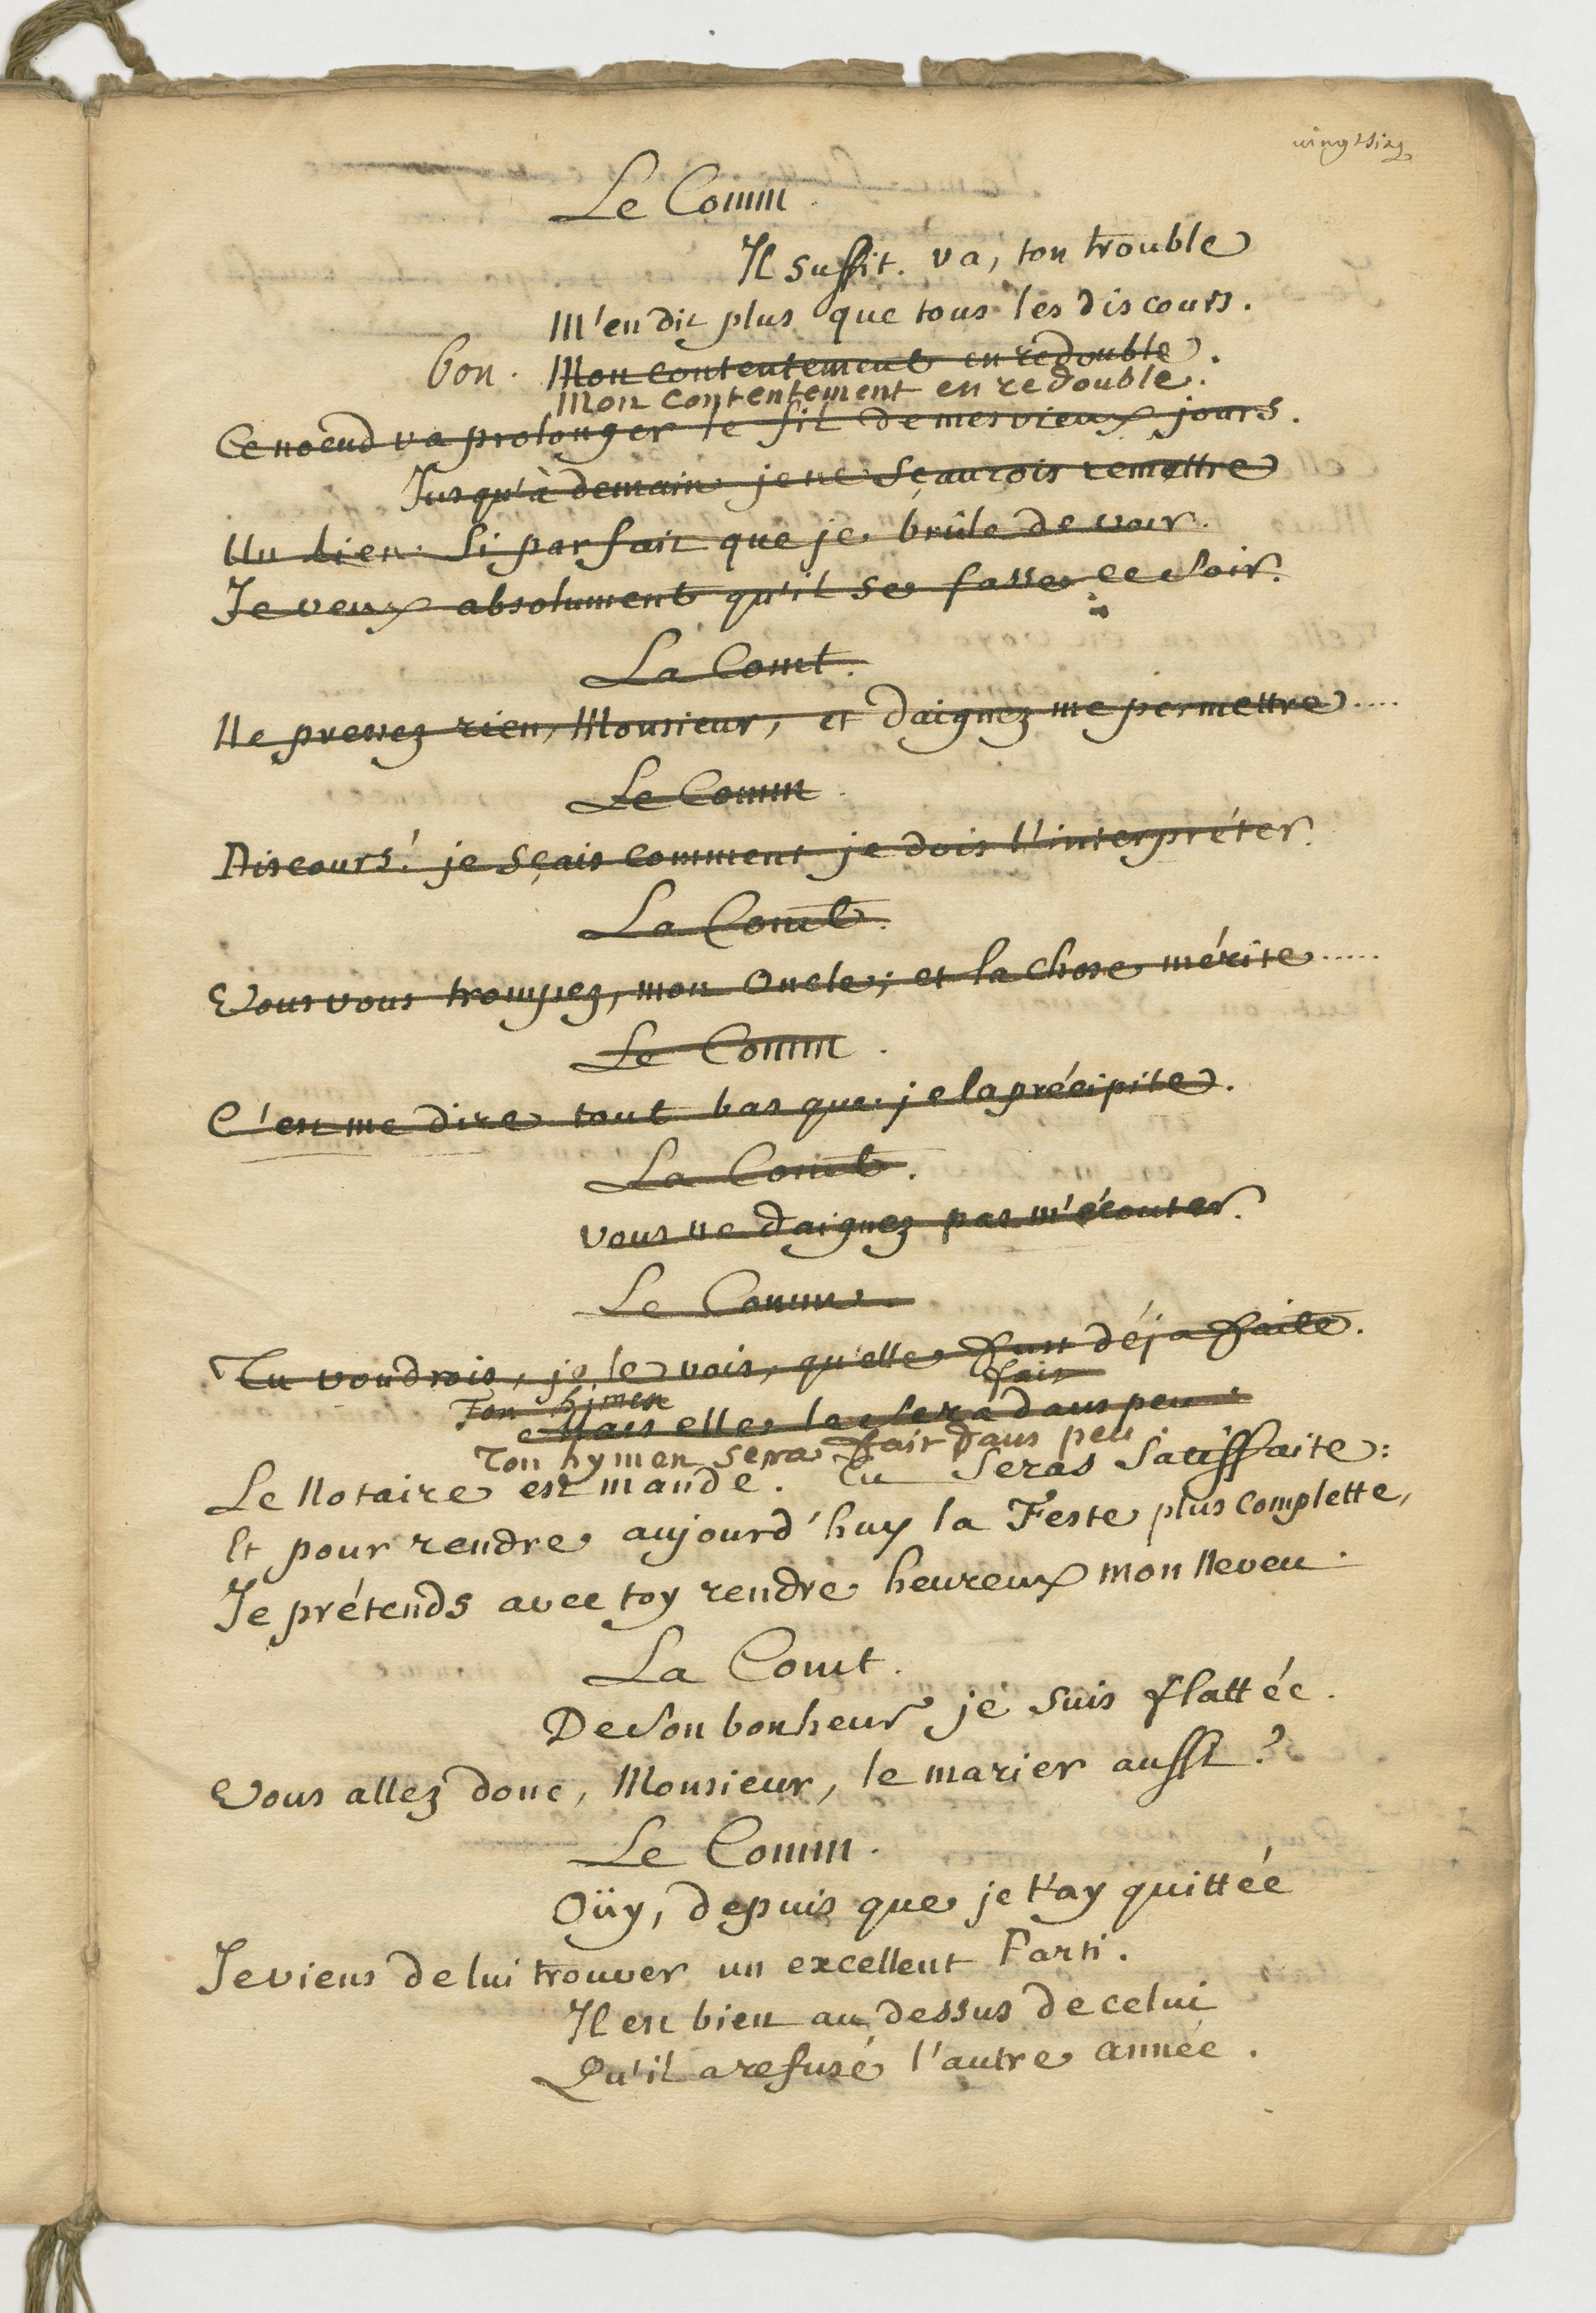 vingt Six
Le Comm.
Il suffit. va, ton trouble
M'en dit plus que tous les discours.
bon. Mon contentement en redouble.
Mon contentement en redouble.
Ce noeud va prolonger le fil de mes vieux jours.
Jusqu'à demain je ne sçaurois remettre
Un lien si parfait que je brûle de voir.
Je veux absolument qu'il se fasse ce soir.
La Comt.
Ne pressez rien, Monsieur, et daignez me permettre.....
Le Comm.
Discours! je sçais comment je dois l'interpréter.
La Comt.
Vous vous trompez, mon Oncle; et la chose mérite.....
Le Comm.
C'est me dire tout bas que je la précipite.
La Comt.
Vous ne daignez pas m'écouter.
Le Comm.
Tu voudrois, je le vois, qu'elle fust déja faite.
fait
Ton himen
Mais elle le sera dans peu.
Ton hymen sera fait dans peu.
Le Notaire est mandé. Tu Seras Satisfaite:
Et pour rendre aujourd'huy la Feste plus complette,
Je prétends avec toy rendre heureux mon Neveu.
La Comt.
De son bonheur je suis flattée.
Vous allez donc, Monsieur, le marier aussi?
Le Comm.
Oüy, depuis que je t'ay quittée
Je viens de lui trouver un excellent Parti.
Il est bien au dessus de celui
Qu'il a refusé l'autre année.